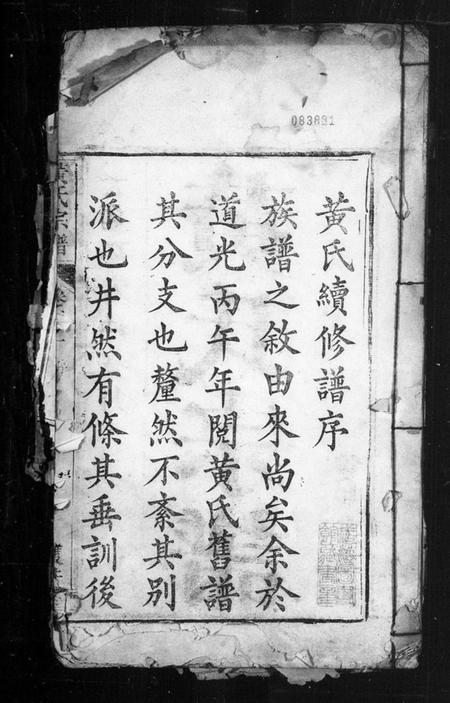 083831
黃氏續修譜序
族譜之敘由來尚矣余於
道光丙午年閱黃氏舊譜
其分支也釐然不紊其別
派也井然有條其垂訓後
氏宗譜